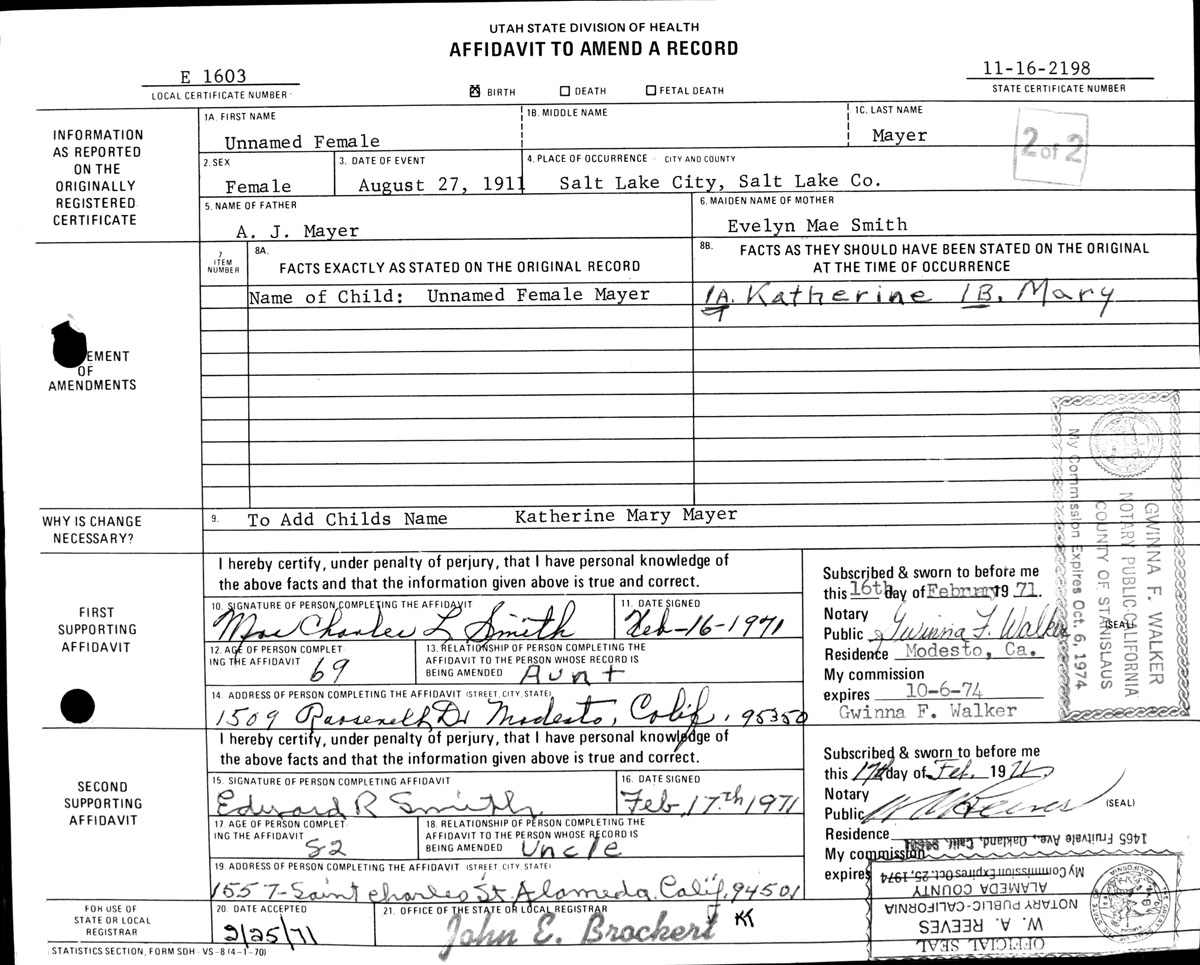 UTAH STATE DIVISION OF HEALTH
AFFIDAVIT TO AMEND A RECORD
E 1603
LOCAL CERTIFICATE NUMBER
BIRTH DEATH FETAL DEATH
11-16-2198
STATE CERTIFICATE NUMBER
INFORMATION AS REPORTED ON THE ORIGINALLY REGISTERED CERTIFICATE
1A. FIRST NAME
Unnamed Female
1B. MIDDLE NAME
1C. LAST NAME
Mayer
2 of 2
2. SEX
Female
3. DATE OF EVENT
August 27, 1911
4. PLACE OF OCCURRENCE CITY AND COUNTY
Salt Lake City, Salt Lake Co.
5. NAME OF FATHER
A. J. Mayer
6. MAIDEN NAME OF MOTHER
Evelyn Mae Smith
EMENT OF AMENDMENTS
7 ITEM NUMBER
8A. FACTS EXACTLY AS STATED ON THE ORIGINAL RECORD
8B. FACTS AS THEY SHOULD HAVE BEEN STATED ON THE ORIGINAL
AT THE TIME OF OCCURRENCE
Name of Child: Unnamed Female Mayer
1A. Katherine 1B. Mary
WHY IS CHANGE NECESSARY?
9. To Add Childs Name Katherine Mary Mayer
FIRST SUPPORTING AFFIDAVIT
I hereby certify, under penalty of perjury, that I have personal knowledge of
the above facts and that the information given above is true and correct.
10. SIGNATURE OF PERSON COMPLETING THE AFFIDAVIT
Mae Charlee L Smith
11. DATE SIGNED
Feb-16-1971
12. AGE OF PERSON COMPLET-
ING THE AFFIDAVIT 69
13. RELATIONSHIP OF PERSON COMPLETING THE
AFFIDAVIT TO THE PERSON WHOSE RECORD IS
BEING AMENDED Aunt
14. ADDRESS OF PERSON COMPLETING THE AFFIDAVIT (STREET, CITY, STATE)
1509 Roosevelt Dr Modesto, Calif, 95350
Subscribed & sworn to before me
this 16th day of February 1971.
Notary
Public Gwinna F. Walker (SEAL)
Residence Modesto, Ca.
My commission
expires 10-6-74
Gwinna F. Walker
GWINNA F. WALKER
NOTARY PUBLIC-CALIFORNIA
COUNTY OF STANISLAUS
My Commission Expires Oct. 6, 1974
SECOND SUPPORTING AFFIDAVIT
I hereby certify, under penalty of perjury, that I have personal knowledge of
the above facts and that the information given above is true and correct.
15. SIGNATURE OF PERSON COMPLETING AFFIDAVIT
Edward R Smith
16. DATE SIGNED
Feb. 17th 1971
17. AGE OF PERSON COMPLET-
ING THE AFFIDAVIT 82
18. RELATIONSHIP OF PERSON COMPLETING THE
AFFIDAVIT TO THE PERSON WHOSE RECORD IS
BEING AMENDED Uncle
19. ADDRESS OF PERSON COMPLETING THE AFFIDAVIT (STREET, CITY, STATE)
1557-Saint Charles St. Alameda. Calif, 94501
Subscribed & sworn to before me
this 17th day of Feb. 1971
Notary
Public W A Reeves (SEAL)
Residence
My commission
expires
1465 Fruitvale Ave., Oakland, Calif. 94601
My Commission Expires Oct. 25, 1974
ALAMEDA COUNTY
NOTARY PUBLIC-CALIFORNIA
W. A. REEVES
OFFICIAL SEAL
FOR USE OF STATE OR LOCAL REGISTRAR
20. DATE ACCEPTED
2/25/71
21. OFFICE OF THE STATE OR LOCAL REGISTRAR
John E. Brockert
STATISTICS SECTION, FORM SDH - VS-8 (4-1-70)